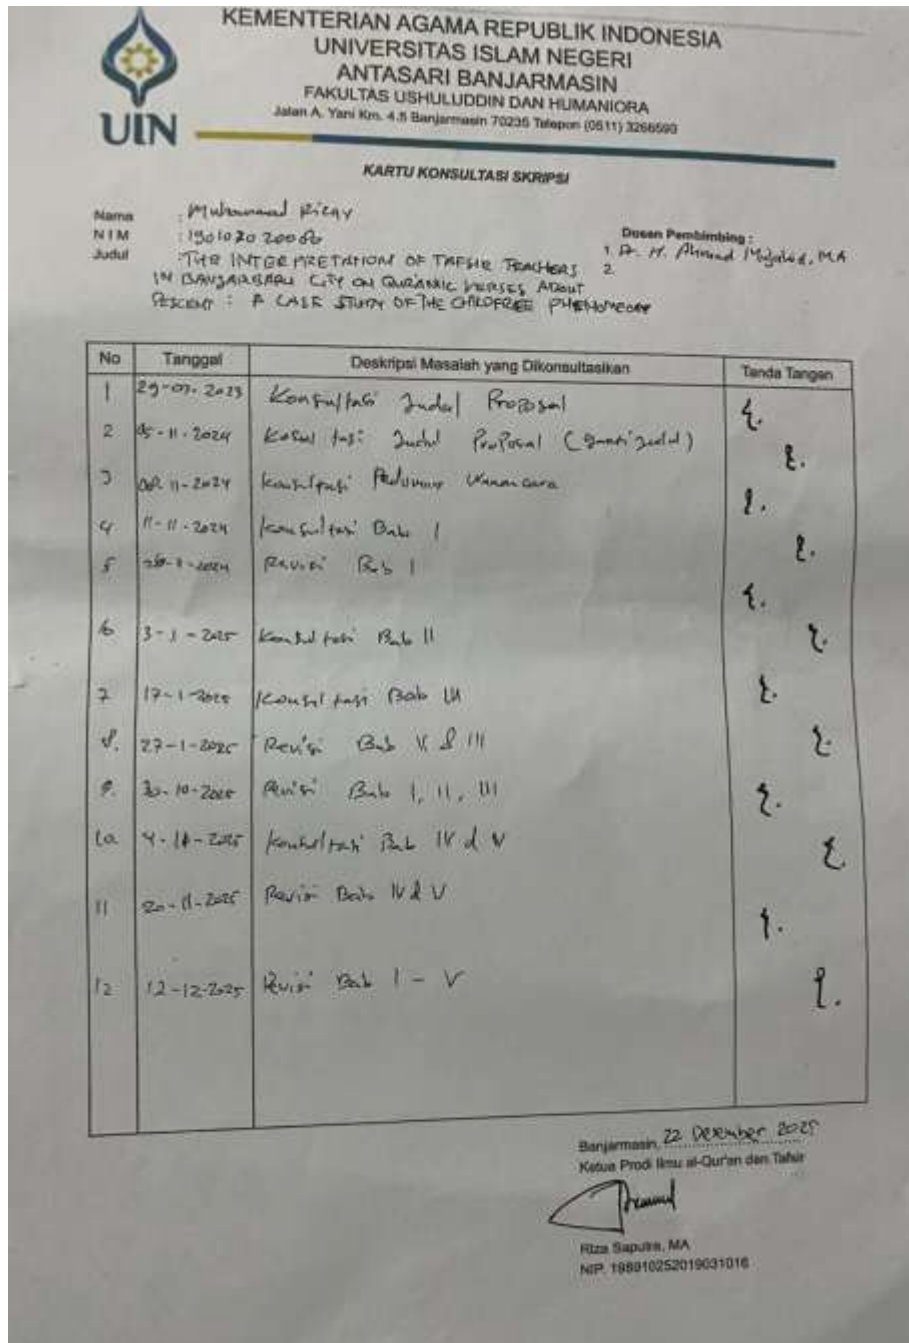 KEMENTERIAN AGAMA REPUBLIK INDONESIA
UNIVERSITAS ISLAM NEGERI
ANTASARI BANJARMASIN
FAKULTAS USHULUDDIN DAN HUMANIORA
Jalan A. Yani Km. 4.5 Banjarmasin 70235 Telepon (0511) 3266593
UIN
KARTU KONSULTASI SKRIPSI
Nama : Muhammad Rizqy
N I M :
Judul : THE INTERPRETATION OF TAFSIR TEACHERS
IN BANJARBARU CITY ON QUR'ANIC VERSES ABOUT
DESCENT : A CASE STUDY OF THE CHILDFREE PHENOMENON
Dosen Pembimbing :
1. Dr. H. Ahmad Mujahid, MA
2.
No Tanggal Deskripsi Masalah yang Dikonsultasikan Tanda Tangan
1 29-07-2023 Konsultasi Judul Proposal
2 05-11-2024 Kosultasi Judul Proposal (Ganti Judul)
3 11-2024 Konsultasi Pedoman Wawancara
4 11-11-2024 Konsultasi Bab I
5 Revisi Bab I
6 3-1-2025 Konsultasi Bab II
7 17-1-2025 Konsultasi Bab III
8. 27-1-2025 Revisi Bab & III
9. 30-10-2025 Revisi Bab I, II, III
10. Konsultasi Bab IV & V
11 20-11-2025 Revisi Bab IV & V
12 12-12-2025 Revisi Bab I - V
Banjarmasin, 22 Desember 2025
Ketua Prodi Ilmu al-Qur'an dan Tafsir
Riza Saputra, MA
NIP. 198910252019031016